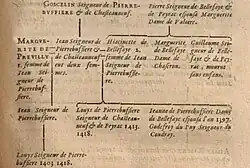 GOSCELIN Seigneur de PIERRE-
BUFFIERE & de Chasteauneuf.
Pierre Seigneur de Bellefaye
& de Peyrat espousa Marguerite
Dame de
MARGUE-
RITE DE
PREVILLY
I. femme
de Jean Sei-
gneur de
Pierrebuf-
fiere.
Jean Seigneur de
Pierrebuffiere &
de Chasteauneuf
eut deux fem-
mes.
Hiacinette de
Bellefaye 2.
femme de Jean
Seigneur de
Pierrebuffiere.
Marguerite
de Bellefaye
Dame de
Guillaume Sei-
gneur de Belle-
faye & de Pey-
rat, mourut
sans enfans.
Jean Seigneur de
Pierrebuffiere.
Louys de Pierrebuffiere
Seigneur de Chasteau-
neuf & de Peyrat 1415.
1418.
Jeanne de Pierrebuffiere Dame
de Bellefaye espousa l'an 1397.
Godefroy du Puy Seigneur du
Coudray.
Louys Seigneur de
Pierrebuffiere 1415. 1418.